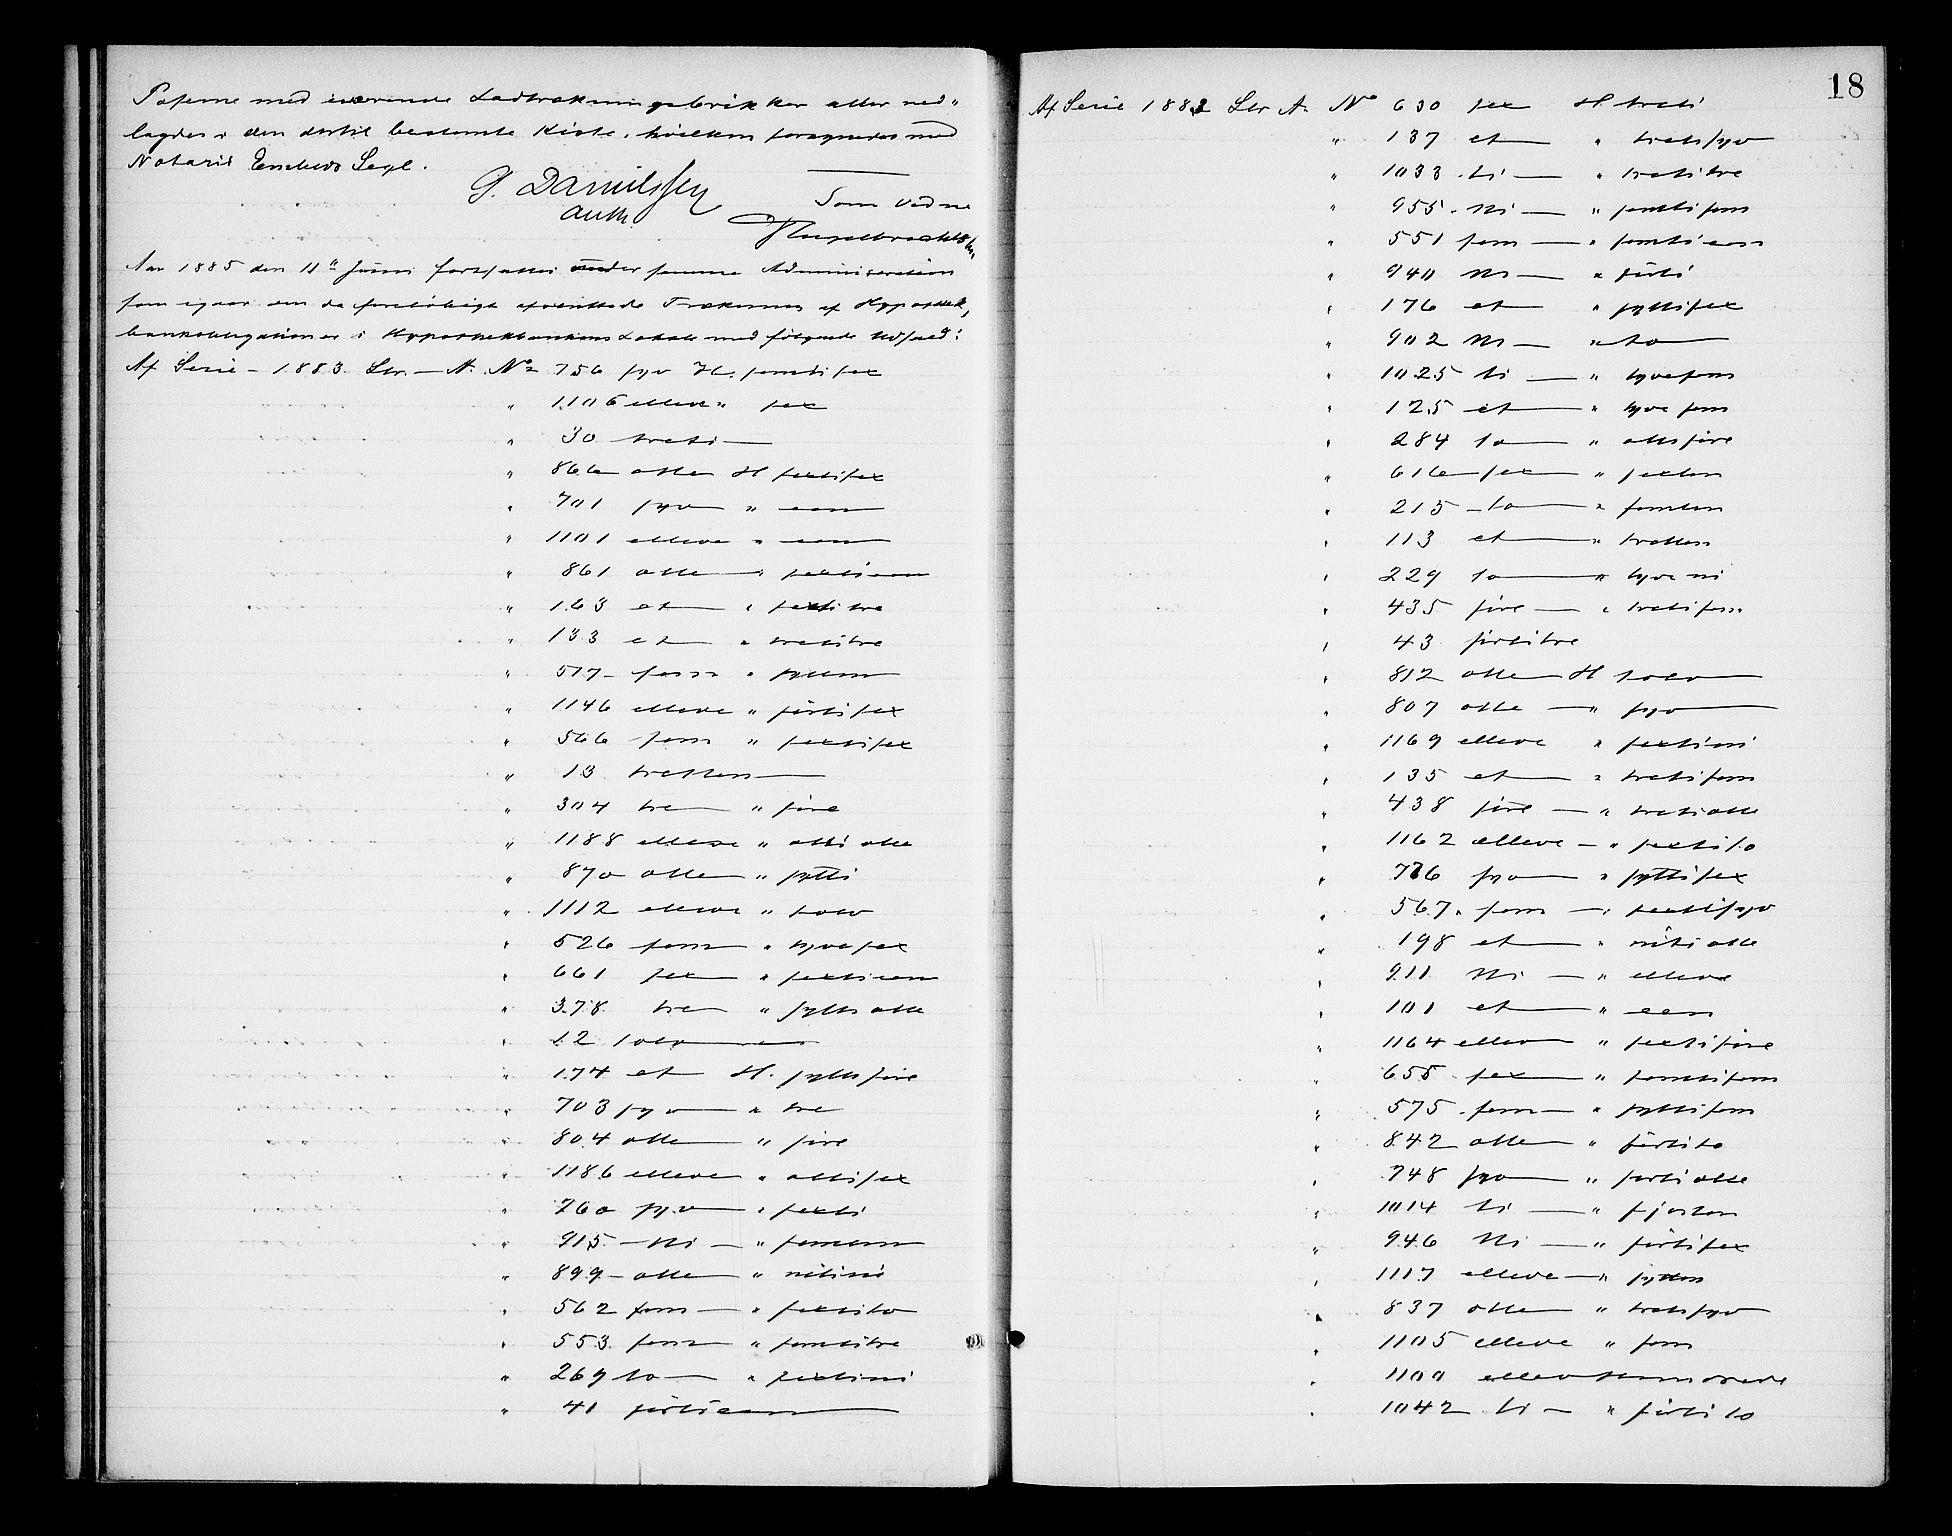 Poserne med iværende Lodtrækningsbrikker atter ned-
lagdes i den dertil bestemte Kiste, hvilken forsynedes med
Notarii Embeds Segl.
G. Danielssen
auth.
Som Vidne
Aar 1885 den 11te Juni fortsattes under samme Administration
som igaar den da foreløbigt afsluttede Trækning af Hypothek,
bankobligationer i Hypothekbankens Lokale med følgende Udfald:
Af Serie - 1883 Ltr. - A. No 756 syv H. femti sex
" 1106 elleve " sex
" 30 treti
" 866 otte H sextisex
" 701 syv " een
" 1101 elleve " een
" 861 otte " sextieen
" 163 et " sextitre
" 133 et " tretitre
" 517 - fem " sytten
" 1146 elleve " førtisex
" 566 fem " sextisex
" 13 tretten
" 304 tre " fire
" 1188 elleve " ottiotte
" 870 otte " sytti
" 1112 elleve " tolv
" 526 fem " tyvesex
" 661 sex " sextieen
" 378 tre " syttiotte
" 12 tolv
" 174 et H. syttifire
" 703 syv " tre
" 804 otte " fire
" 1186 elleve " ottisex
" 760 syv " sexti
" 915 - Ni - " femten
" 899 - otte " nitini
" 562 fem - " sextito
" 553 fem " femtitre
" 269 to - " sextini
" 41 førtieen
18
Af Serie 1883 Ltr A. No 630 sex H treti
" 137 et " tretisyv
" 1033 ti - " tretitre
" 955 Ni - " femtifem
" 551 fem - " femtieen
" 940 Ni - " førti
" 176 et " syttisex
" 902 Ni - " to
" 1025 ti - " tyvefem
" 125 et " tyve fem
" 284 to " ottifire
" 616 sex " sexten
" 215 - to " femten
" 113 et " tretten
" 229 to " tyve ni
" 435 fire - " tretifem
" 43 førtitre
" 812 otte H tolv
" 807 otte - " syv
" 1169 elleve " sextini
" 135 et " tretifem
" 438 fire - " tretiotte
" 1162 elleve - " sextito
" 776 syv " syttisex
" 567 fem - " sextisyv
" 198 et " nitiotte
" 911 Ni - " elleve
" 101 et " een
" 1164 elleve " sextifire
" 655 sex " femtifem
" 575 fem - " syttifem
" 842 otte " førtito
" 748 syv " førtiotte
" 1014 ti - " fjorten
" 946 Ni - " førtisex
" 1117 elleve - " sytten
" 837 otte " tretisyv
" 1105 elleve " fem
" 1100 ellevehundrede
" 1042 ti - " førtito